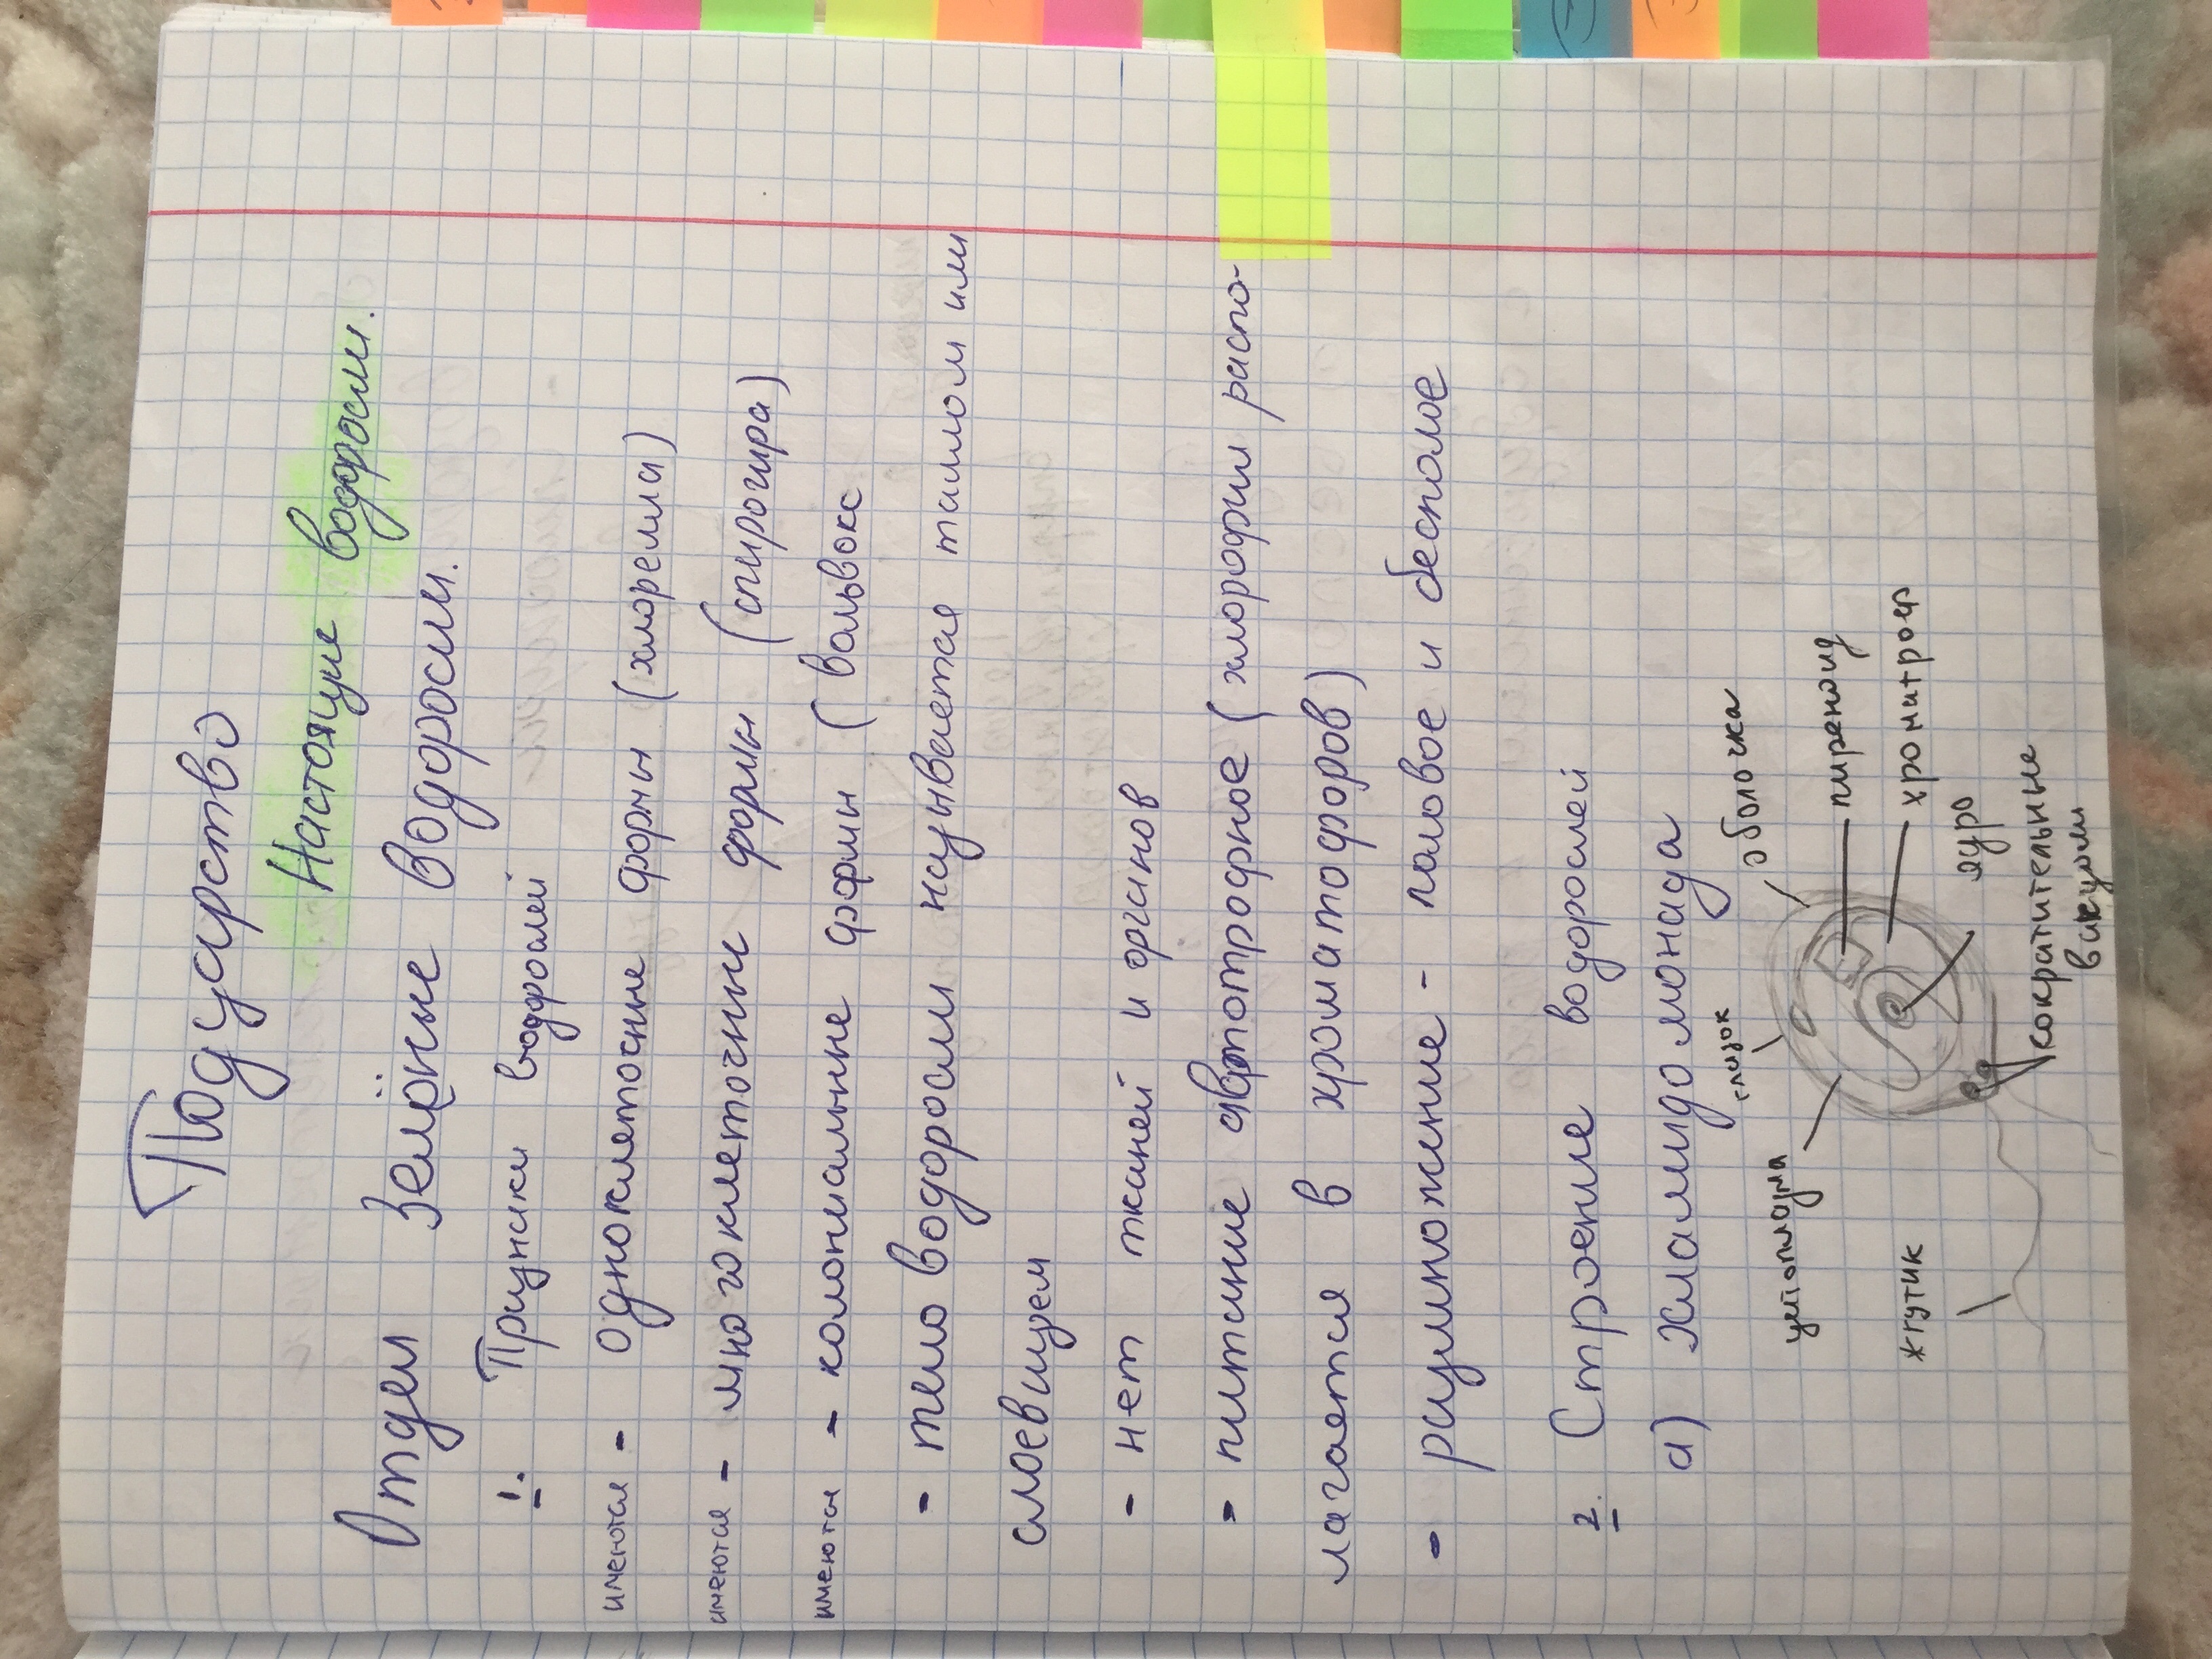 Подцарство
Настоящие водоросли.
Отдел Зелёные Водоросли.
1. Признаки водорослей
имеются - одноклеточные формы (хлорелла)
имеются - многоклеточные формы (спирогира)
имеются - колониальные формы (вольвокс
- тело водоросли называется таллом или
слоевищем
- нет тканей и органов
- питание автотрофное (хлорофилл распо-
лагается в хроматофоров)
- размножение - половое и бесполое
2. Строение водорослей
а) хламидомонада
оболочка
глазок
пиреноид
цитоплазма
хроматофор
ядро
жгутик
сократительные
вакуоли